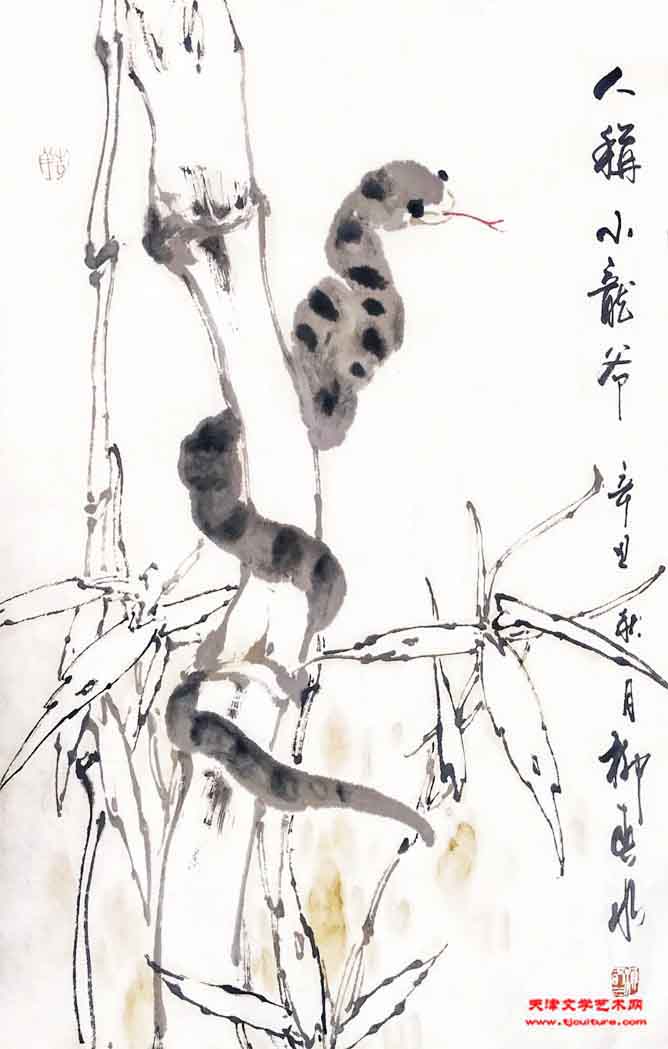 人稱小龍爷 辛丑秋月柳春水
天津文学艺术网
www.tjculture.com